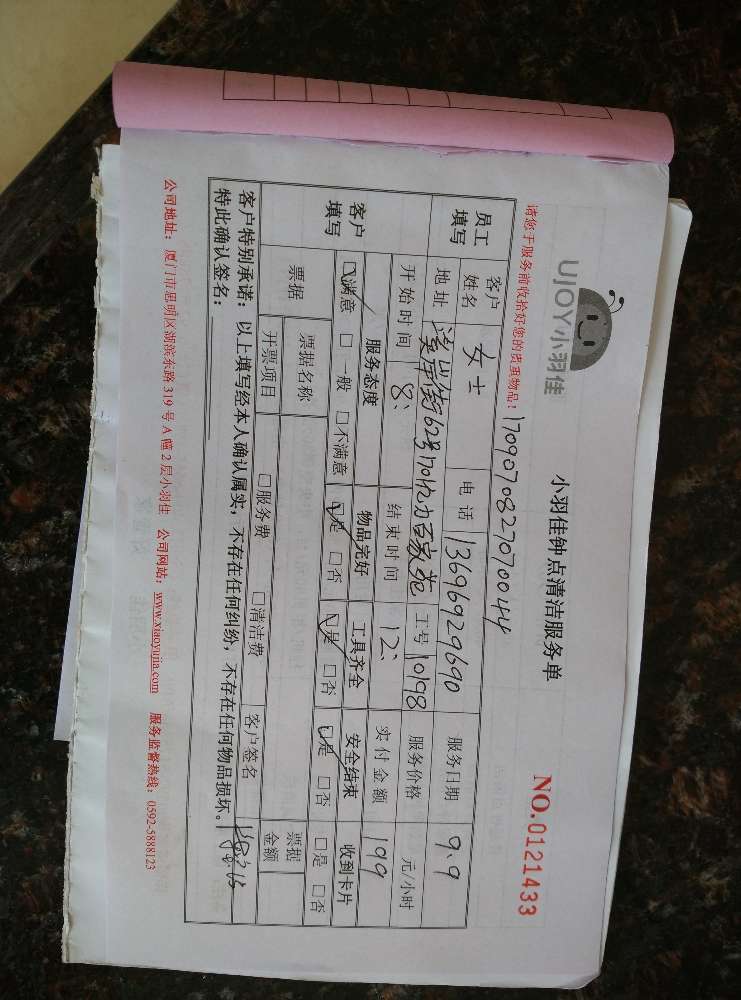 UJOY小羽佳
小羽佳钟点清洁服务单
NO.0121433
请您于服务前收拾好您的贵重物品！ 1709070827070044
员工填写 客户姓名 女士 电话 13696929690 服务日期 9.9
地址 62号 百家苑 工号 10198 服务价格 元/小时
开始时间 8: 结束时间 12: 实付金额 199
客户填写 服务态度 物品完好 工具齐全 安全结束 收到卡片
☑满意 □一般 □不满意 ☑是 □否 ☑是 □否 ☑是 □否 □是 □否
票据 票据名称 票据金额
开票项目 □服务费 □清洁费 客户签名
客户特别承诺：以上填写经本人确认属实，不存在任何纠纷，不存在任何物品损坏。
特此确认签名：
公司地址：厦门市思明区湖滨东路 319 号 A 幢 2 层小羽佳 公司网站：www.xiaoyujia.com 服务监督热线：0592-5888123